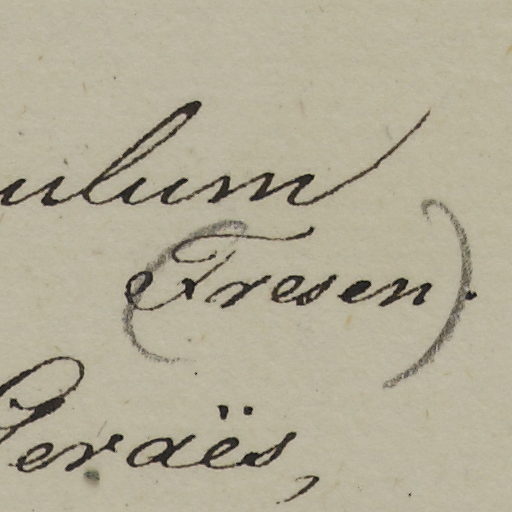 ulum
(Fresen).
Geraës,